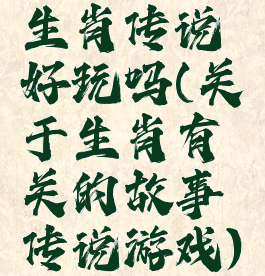 生肖传说
好玩吗(关
于生肖有
关的故事
传说游戏)